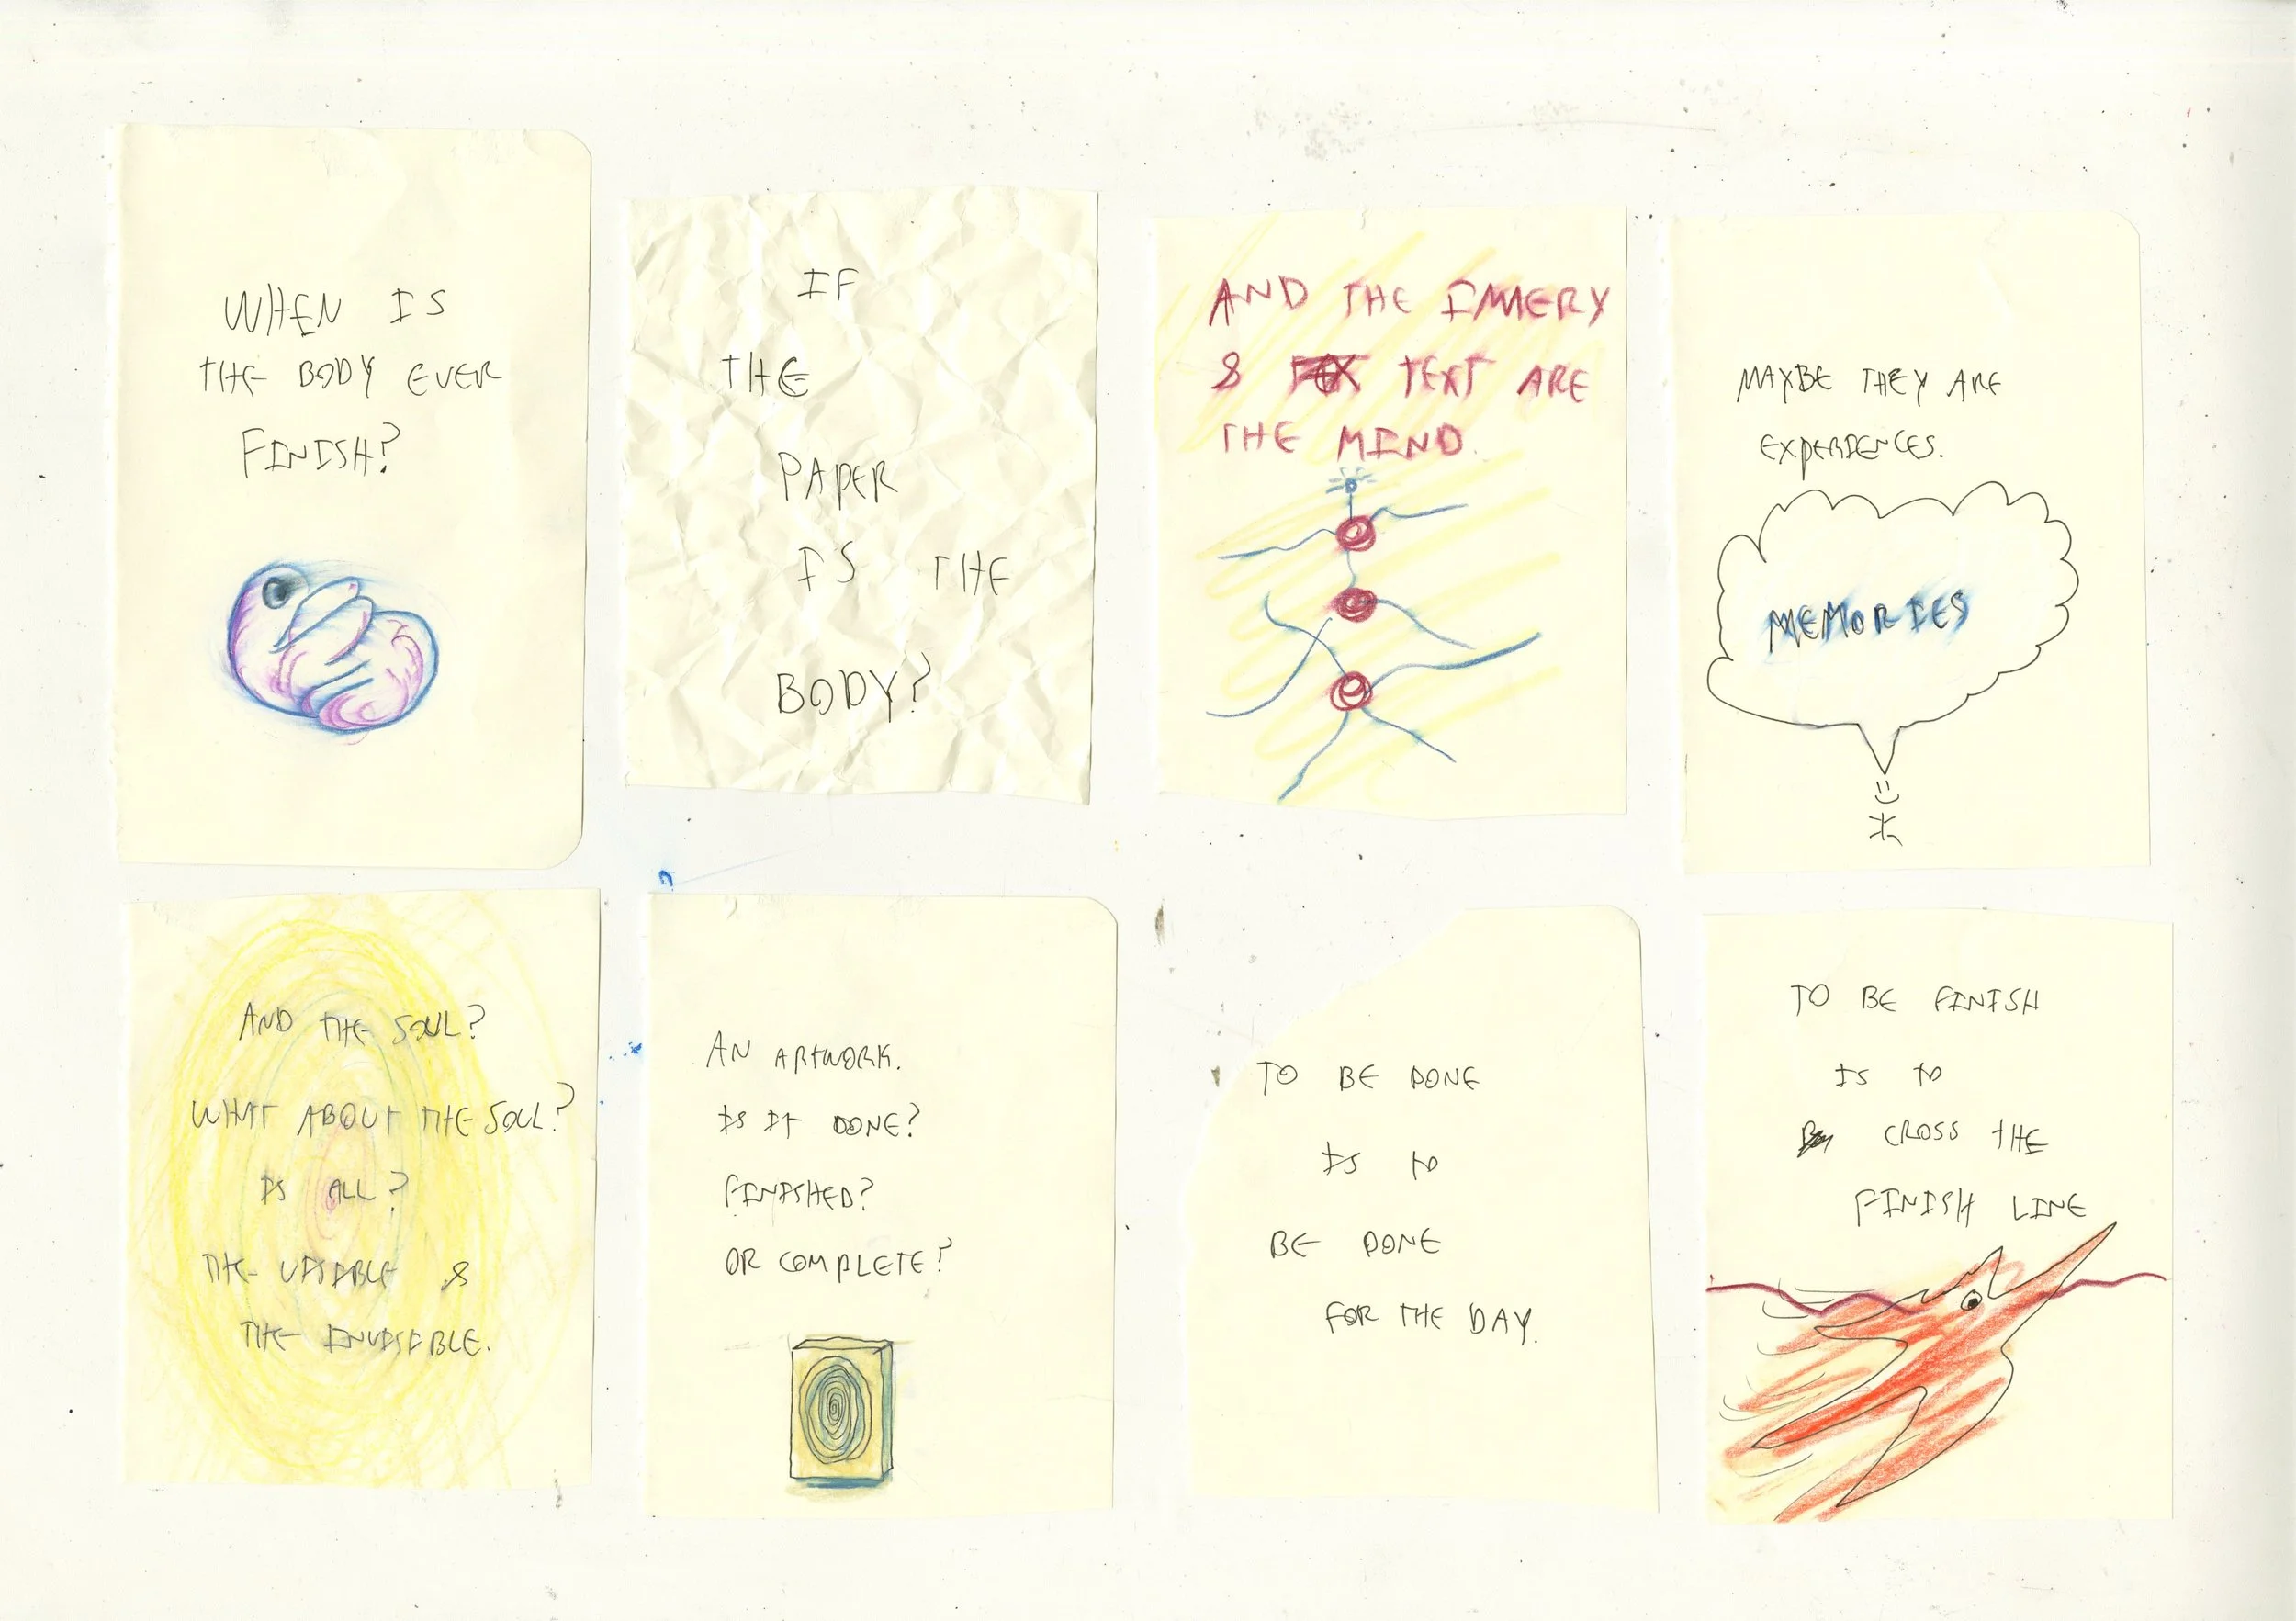 WHEN IS
THE BODY EVER
FINISH?
IF
THE
PAPER
IS THE
BODY?
AND THE IMMERY
& TEXT ARE
THE MIND.
MAYBE THEY ARE
EXPERIENCES.
MEMORIES
AND THE SOUL?
WHAT ABOUT THE SOUL?
IS ALL?
THE VISIBLE &
THE INVISIBLE.
AN ARTWORK.
IS IT DONE?
FINISHED?
OR COMPLETE?
TO BE DONE
IS TO
BE DONE
FOR THE DAY.
TO BE FINISH
IS TO
CROSS THE
FINISH LINE